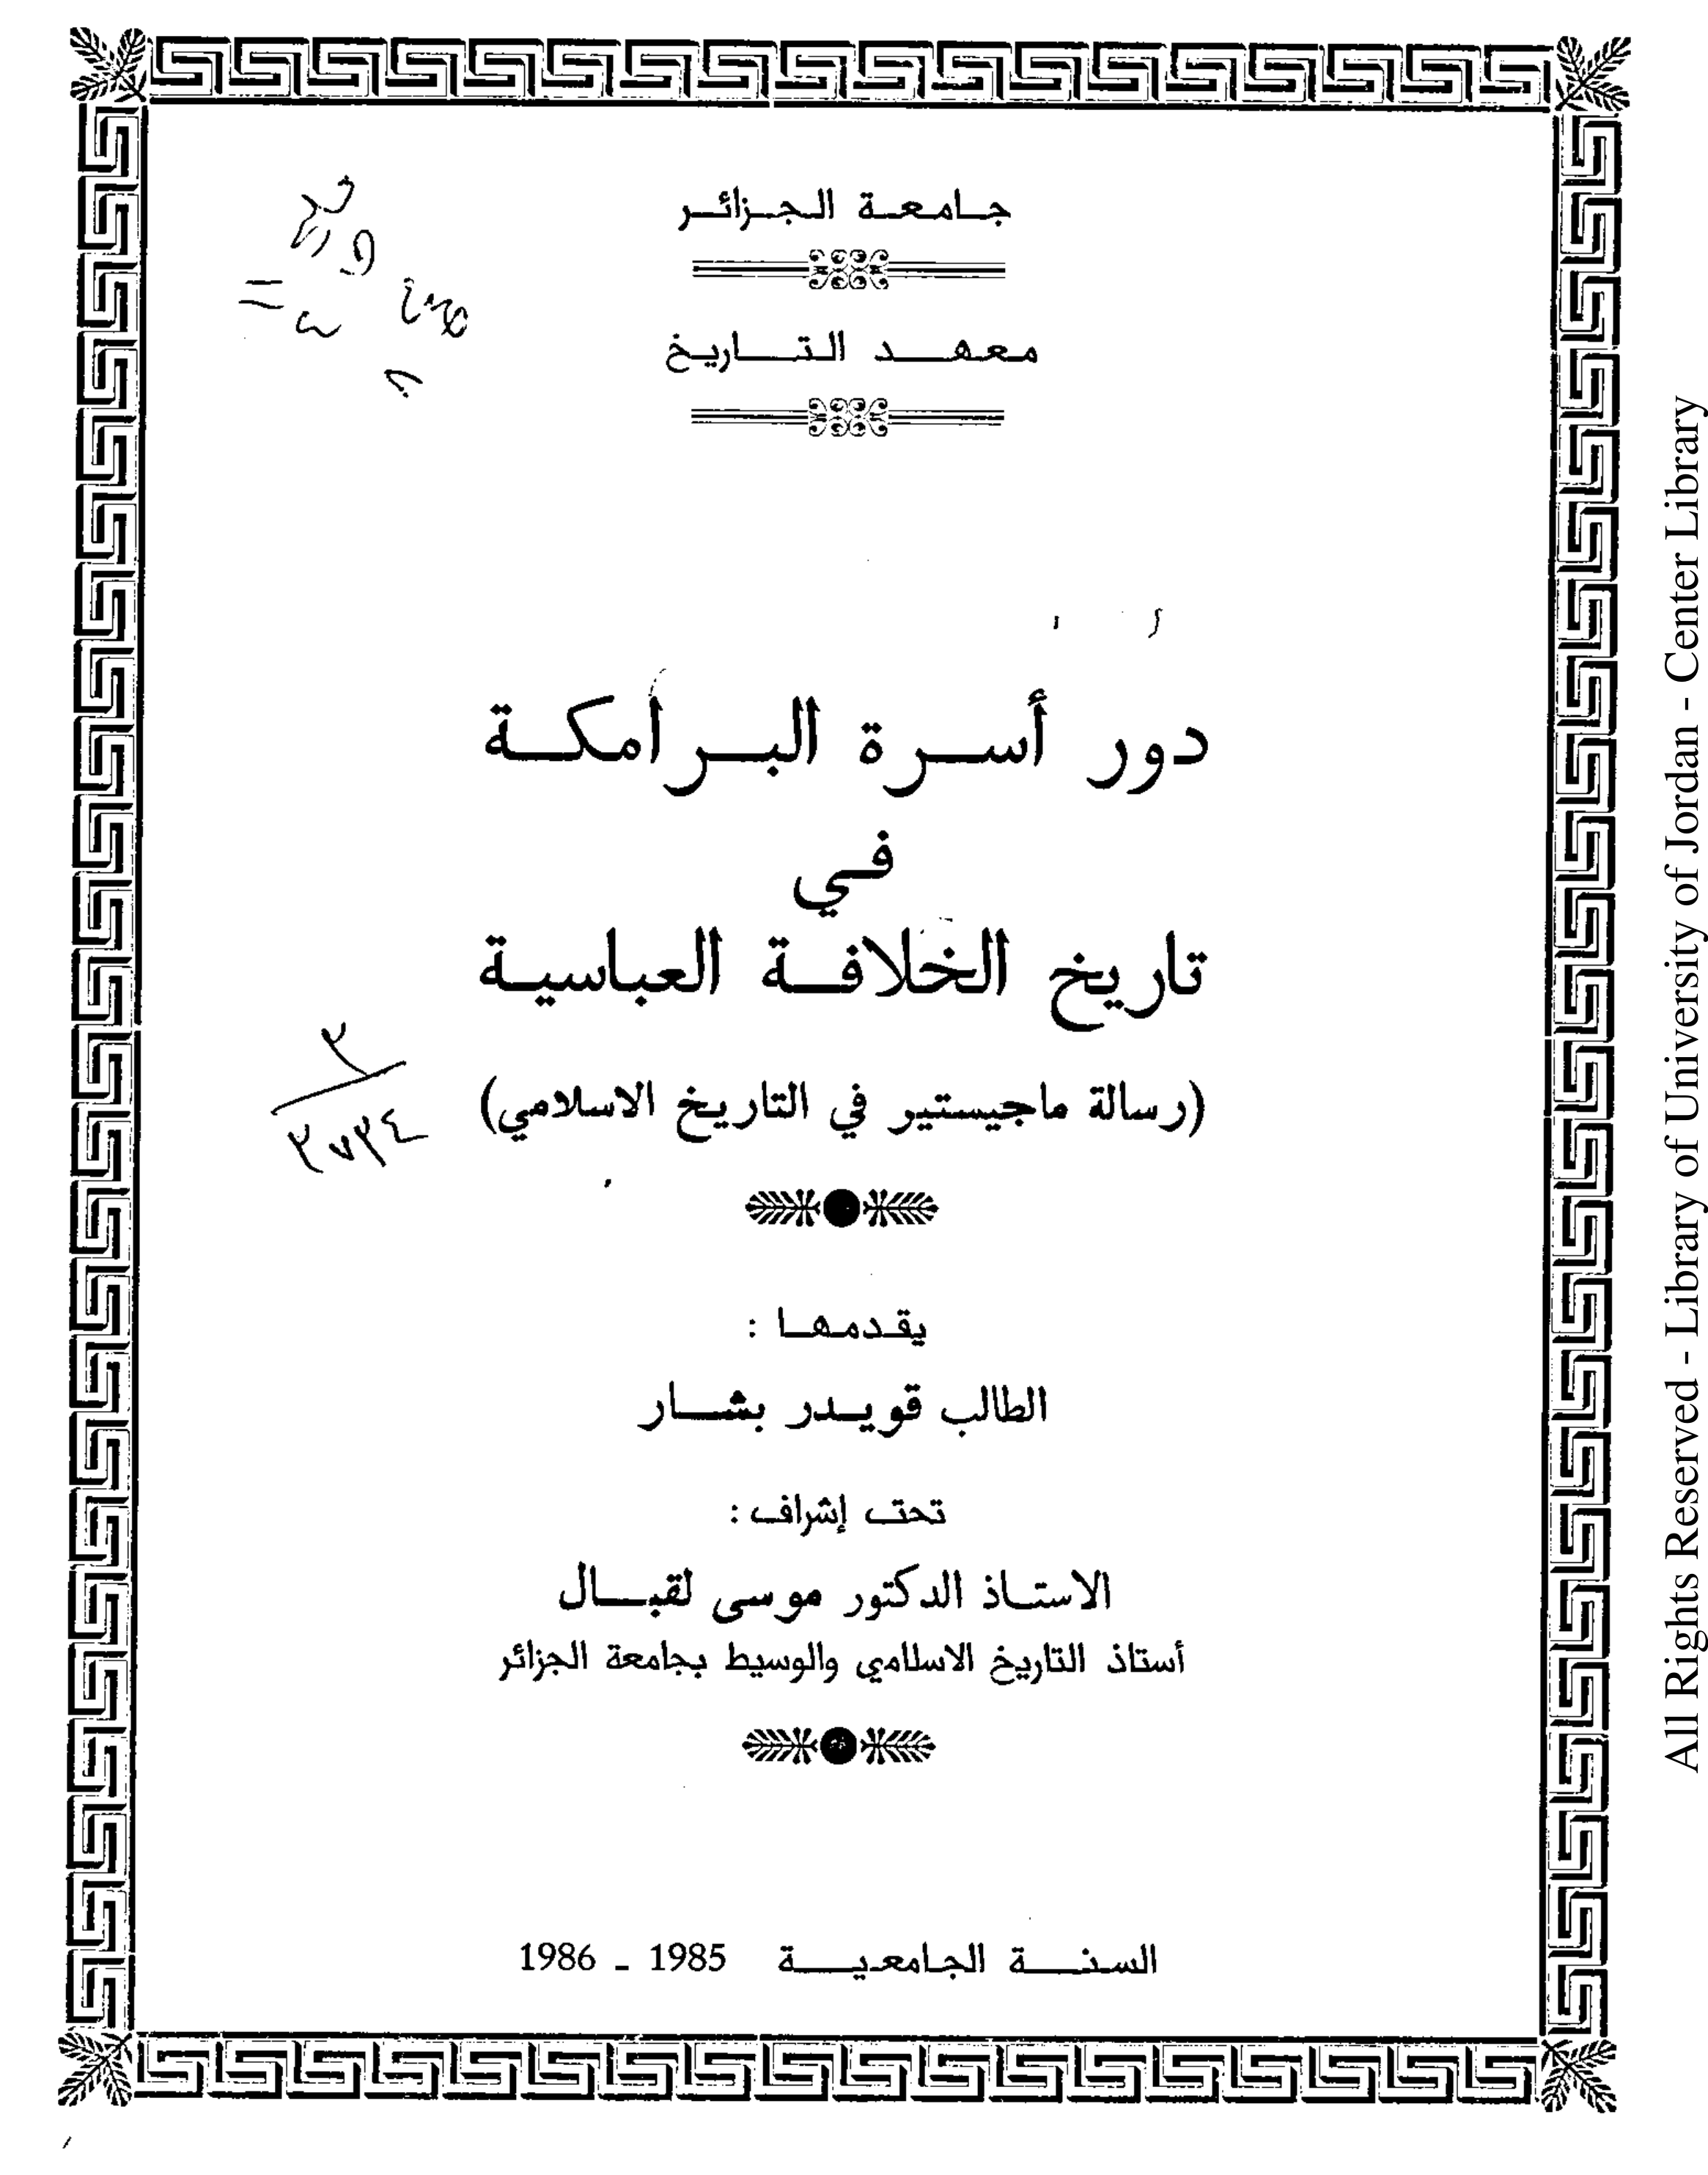 جامعة الجزائر
معهد التاريخ
دور أسرة البرامكة
في
تاريخ الخلافة العباسية
(رسالة ماجيستير في التاريخ الاسلامي)
٣
٣٧٣٤
يقدمها :
الطالب قويدر بشار
تحت إشراف :
الاستاذ الدكتور موسى لقبال
أستاذ التاريخ الاسلامي والوسيط بجامعة الجزائر
السنة الجامعية 1985 - 1986
All Rights Reserved - Library of University of Jordan - Center Library